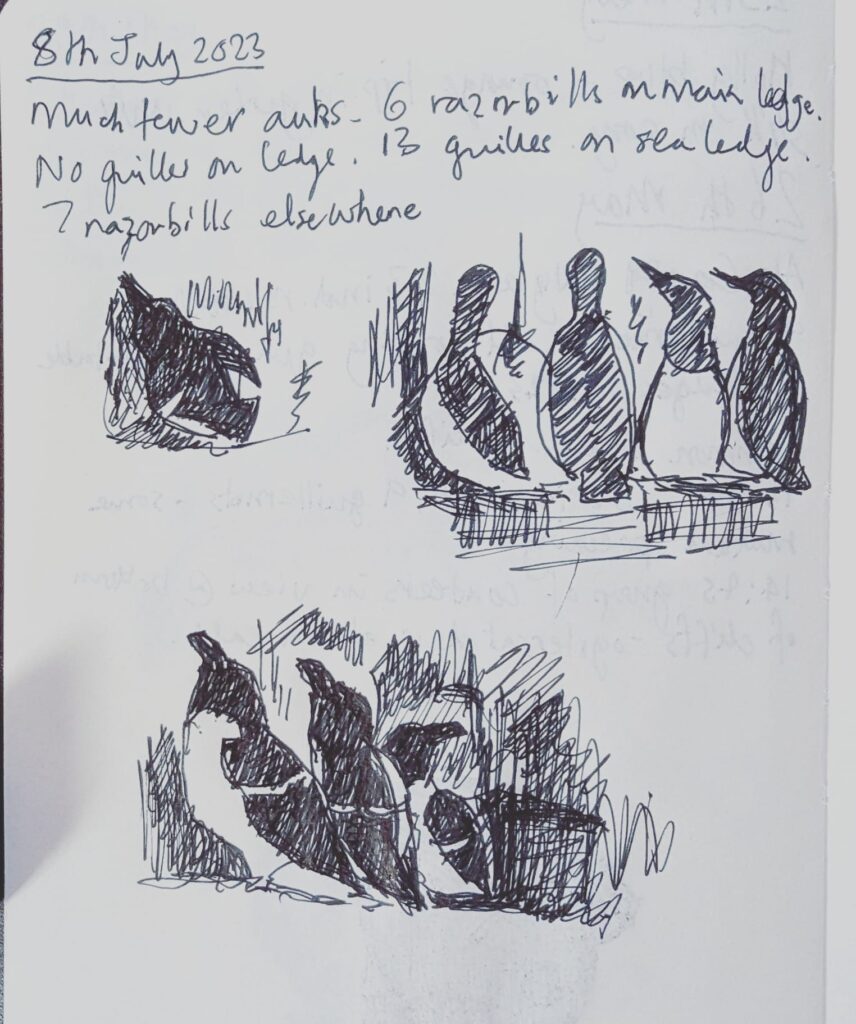 8th July 2023
Much fewer auks - 6 razorbills on main ledge.
No guilles on ledge. 13 guilles on sea ledge.
7 razorbills elsewhere